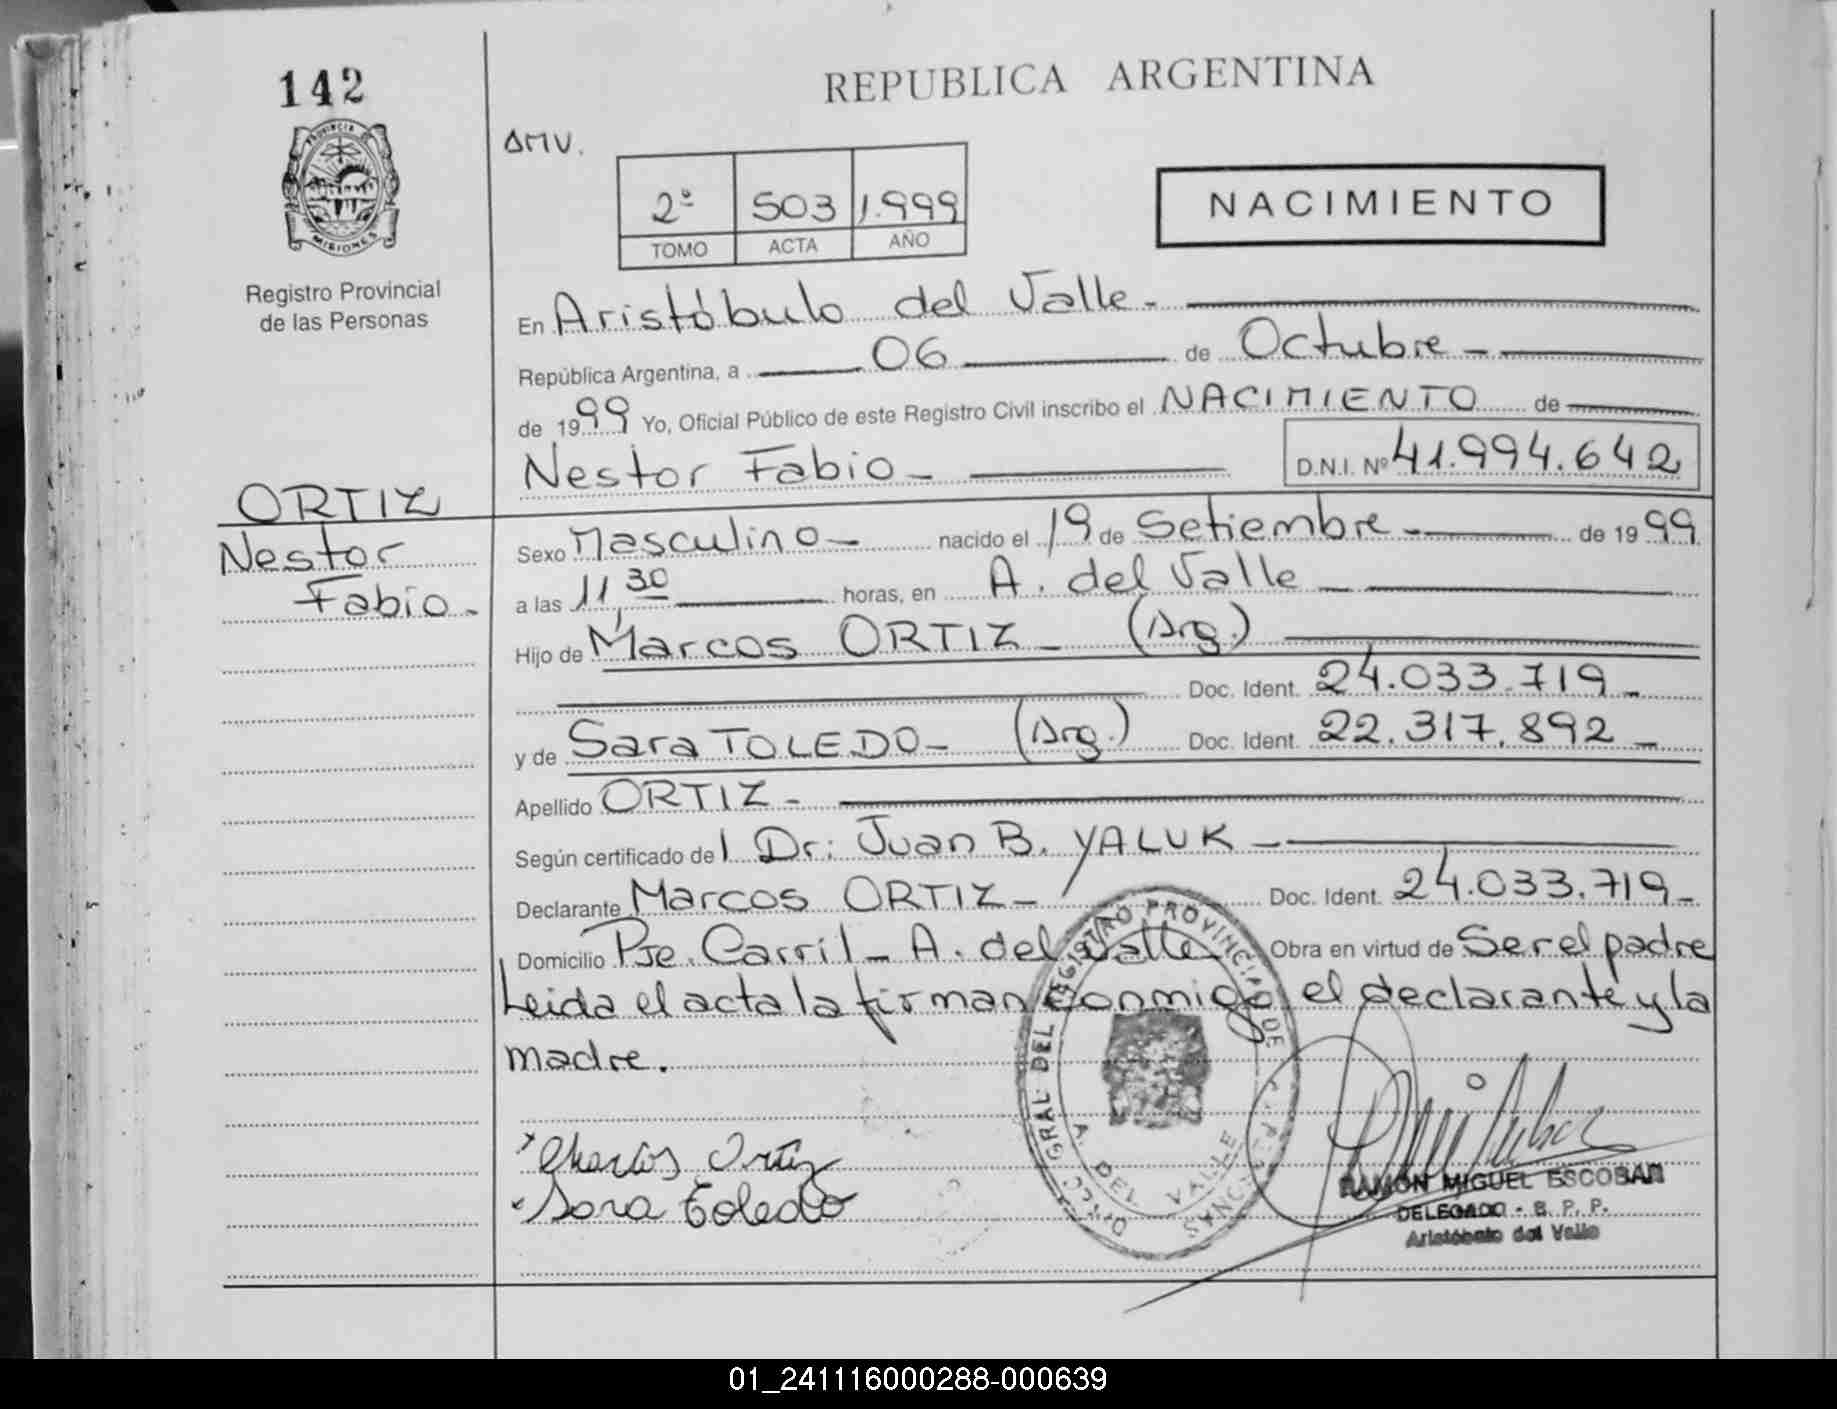 142
REPUBLICA ARGENTINA
PROVINCIA DE
MISIONES
Registro Provincial
de las Personas
AMV.
2º 503 1.999
TOMO ACTA AÑO
NACIMIENTO
En Aristóbulo del Valle -
República Argentina, a 06 de Octubre -
de 1999 Yo, Oficial Público de este Registro Civil inscribo el NACIMIENTO de
Nestor Fabio - D.N.I. Nº 41.994.642
ORTIZ
Nestor
Fabio -
Sexo Masculino - nacido el 19 de Setiembre - de 1999
a las 11 30 horas, en A. del Valle -
Hijo de Marcos ORTIZ - (Arg.)
Doc. Ident. 24.033.719 -
y de Sara TOLEDO - (Arg.) Doc. Ident. 22.317.892 -
Apellido ORTIZ -
Según certificado del Dr: Juan B. YALUK -
Declarante Marcos ORTIZ - Doc. Ident. 24.033.719 -
Domicilio Pje. Carril - A. del Valle Obra en virtud de Ser el padre
Leida el acta la firman conmigo el declarante y la
madre.
DIRECC. GRAL. DEL REGISTRO PROVINCIAL DE
A. DEL VALLE
Marcos Ortiz
Sara Toledo
RAMÓN MIGUEL ESCOBAR
DELEGADO - R. P. P.
Aristóbulo del Valle
01_241116000288-000639